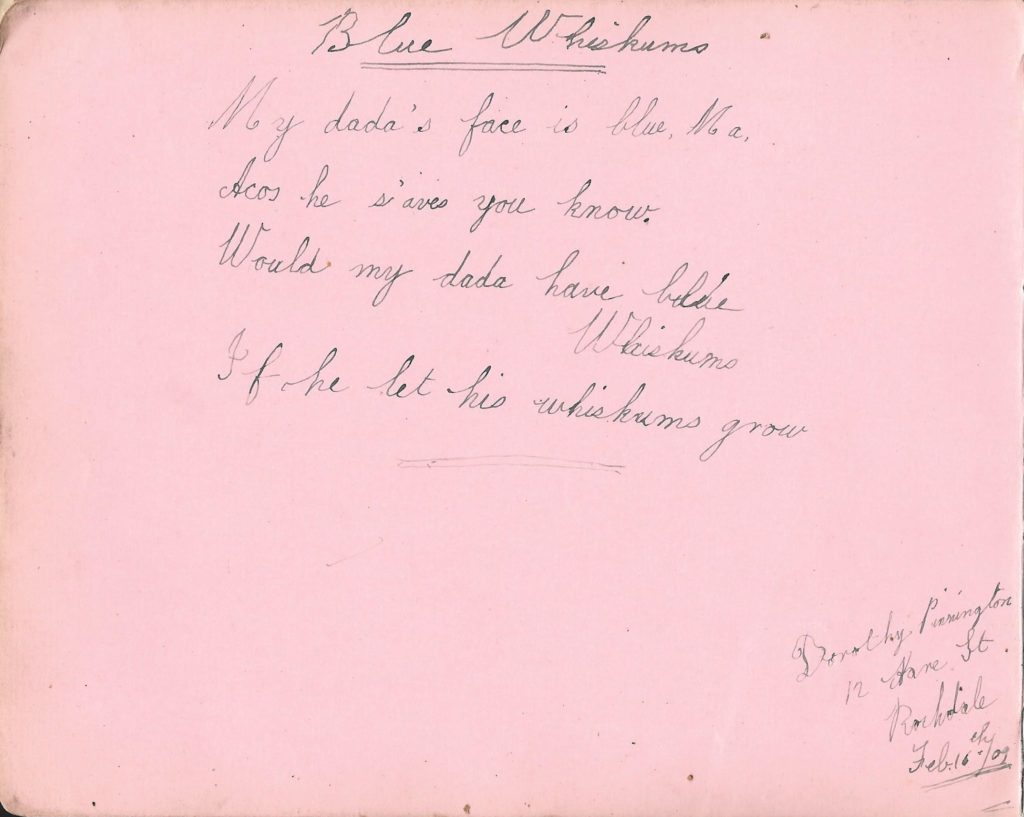 Blue Whiskums
My dada's face is blue, Ma,
Acos he s'aves you know.
Would my dada have blue
Whiskums
If he let his whiskums grow
Dorothy Pinnington
12 Hare St.
Rochdale
Feb. 16th/09